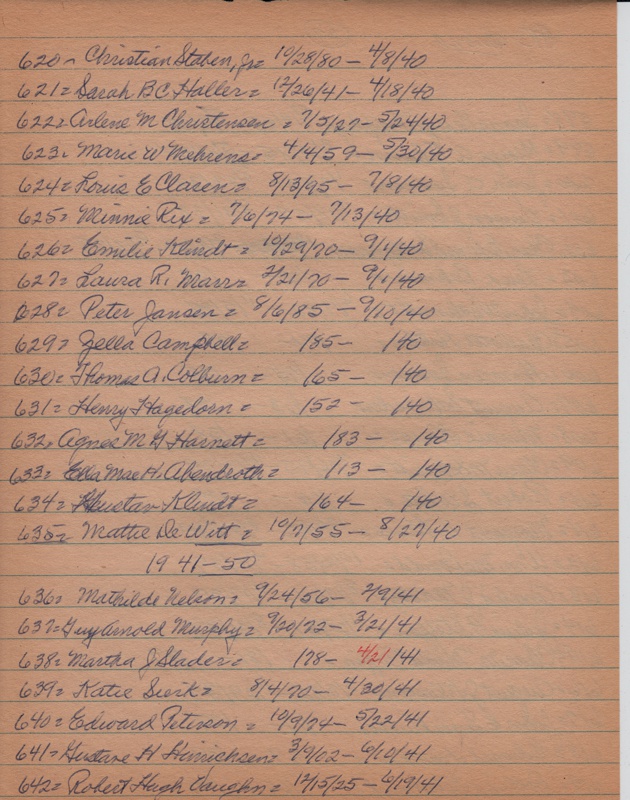 620 - Christian Staben, Jr = 10/28/80 - 4/8/40
621 = Sarah BC Haller = 12/26/41 - 4/18/40
622 = Arlene M Christensen = 7/5/27 - 5/24/40
623 = Marie W Mehrens = 4/4/59 - 5/30/40
624 = Louis E Clasen = 8/13/95 - 7/8/40
625 = Minnie Rix = 7/6/74 - 7/13/40
626 = Emilie Klindt = 10/29/70 - 9/1/40
627 = Laura R. Marr = 2/21/70 - 9/1/40
628 = Peter Jansen = 8/6/85 - 9/10/40
629 = Zella Campbell = 185 - 140
630 = Thomas A. Colburn = 165 - 140
631 = Henry Hagedorn = 152 - 140
632 = Agnes M G Harnett = 183 - 140
633 = Ella Mae H. Abendroth = 113 - 140
634 = Gustav Klindt = 164 - 140
635 = Mattie De Witt = 10/7/55 - 8/27/40
1941-50
636 = Mathilde Nelson = 9/24/56 - 2/9/41
637 = Guy Arnold Murphy = 9/20/72 - 3/21/41
638 = Martha J Slader = 178 - 4/21/41
639 = Katie Sierk = 8/4/70 - 4/30/41
640 = Edward Peterson = 10/9/74 - 5/22/41
641 = Gustave H Hinrichsen = 3/9/02 - 6/10/41
642 = Robert Hugh Vaughn = 12/15/25 - 6/19/41